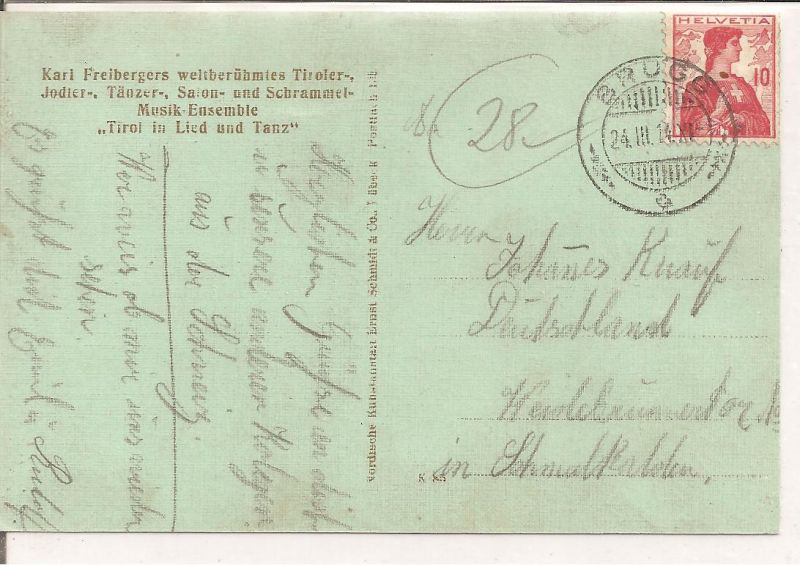 Karl Freibergers weltberühmtes Tiroler-,
Jodler-, Tänzer-, Salon- und Schrammel-
Musik-Ensemble
„Tirol in Lied und Tanz“
HELVETIA
10
BRUGG
24.III.14
28
Herrn
Johannes Knauf
Deutschland
in Schmalkalden,
Herzlichen Grüße an dich
u unsere anderen Kolegen
aus der Schweiz.
Wer weis ob wir uns wieder
sehen.
Es grüßt dich
Nordische Kunstanstalt Ernst Schmidt & Co., Lübeck
K